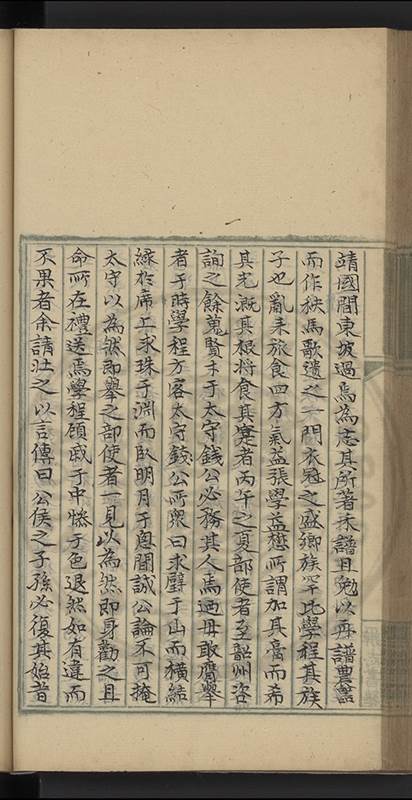 靖國間東坡過焉為志其所著禾譜且勉以再譜農器
而作秧馬歌遺之一門衣冠之盛鄉族罕比學程其族
子也亂來旅食四方氣益張學益懋所謂加其膏而希
其光溉其根將食其實者丙午之夏部使者至韶州咨
詢之餘蒐賢才于太守錢公必務其人焉過毋敢膺舉
者于時學程方客太守錢公所衆曰求璧于山而橫結
緑於席上求珠于淵而臥明月于恩闥誠公論不可掩
太守以為然即舉之部使者一見以為然即身勸之且
命所在禮送焉學程顧戚于中慘于色退然如有違而
不果者余請壯之以言傳曰公侯之子孫必復其始昔